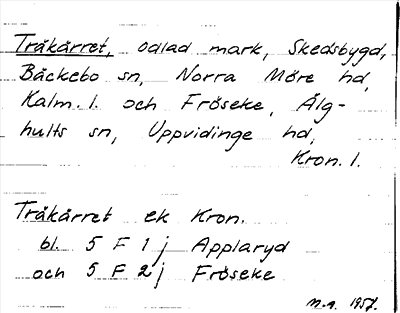 Tråkärret, odlad mark, Skedsbygd,
Bäckebo sn, Norra Möre hd,
Kalm. l. och Fröseke, Älg-
hults sn, Uppvidinge hd,
Kron. l.
Tråkärret ek Kron.
bl. 5 F 1 j Applaryd
och 5 F 2 j Fröseke
1957.